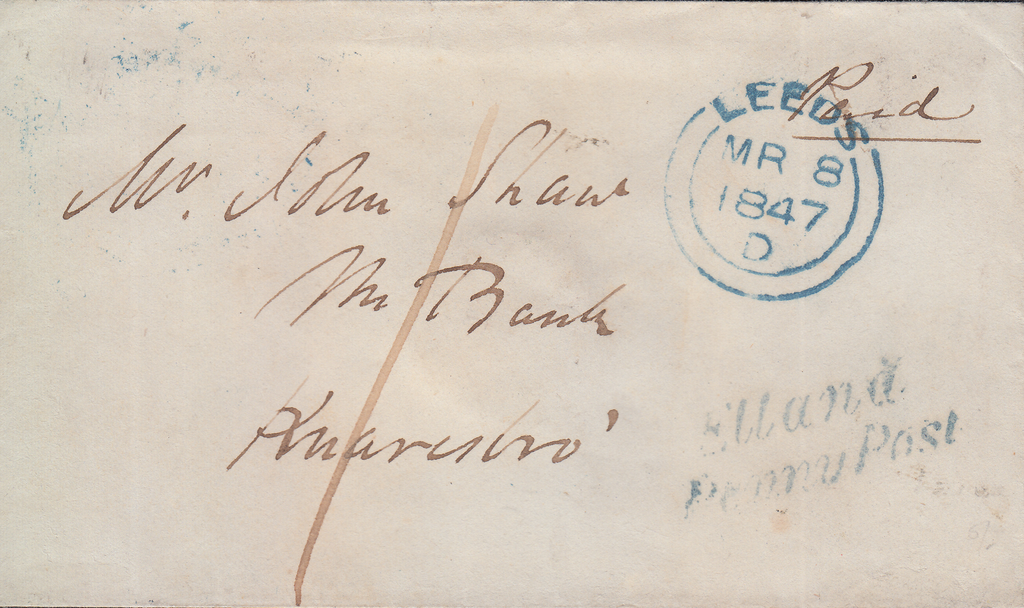 Paid
LEEDS
MR 8
1847
D
Mr. John Shaw
Bank
Knaresbro'
Elland
Penny Post